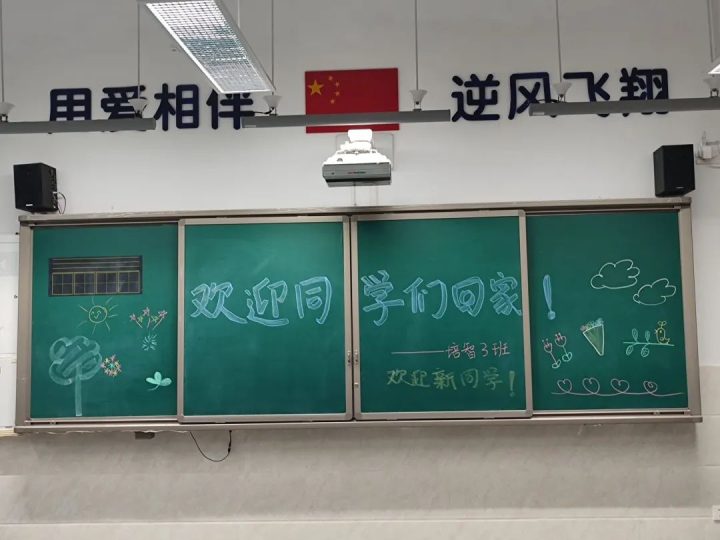 用爱相伴 逆风飞翔
欢迎同学们回家！
——培智3班
欢迎新同学！